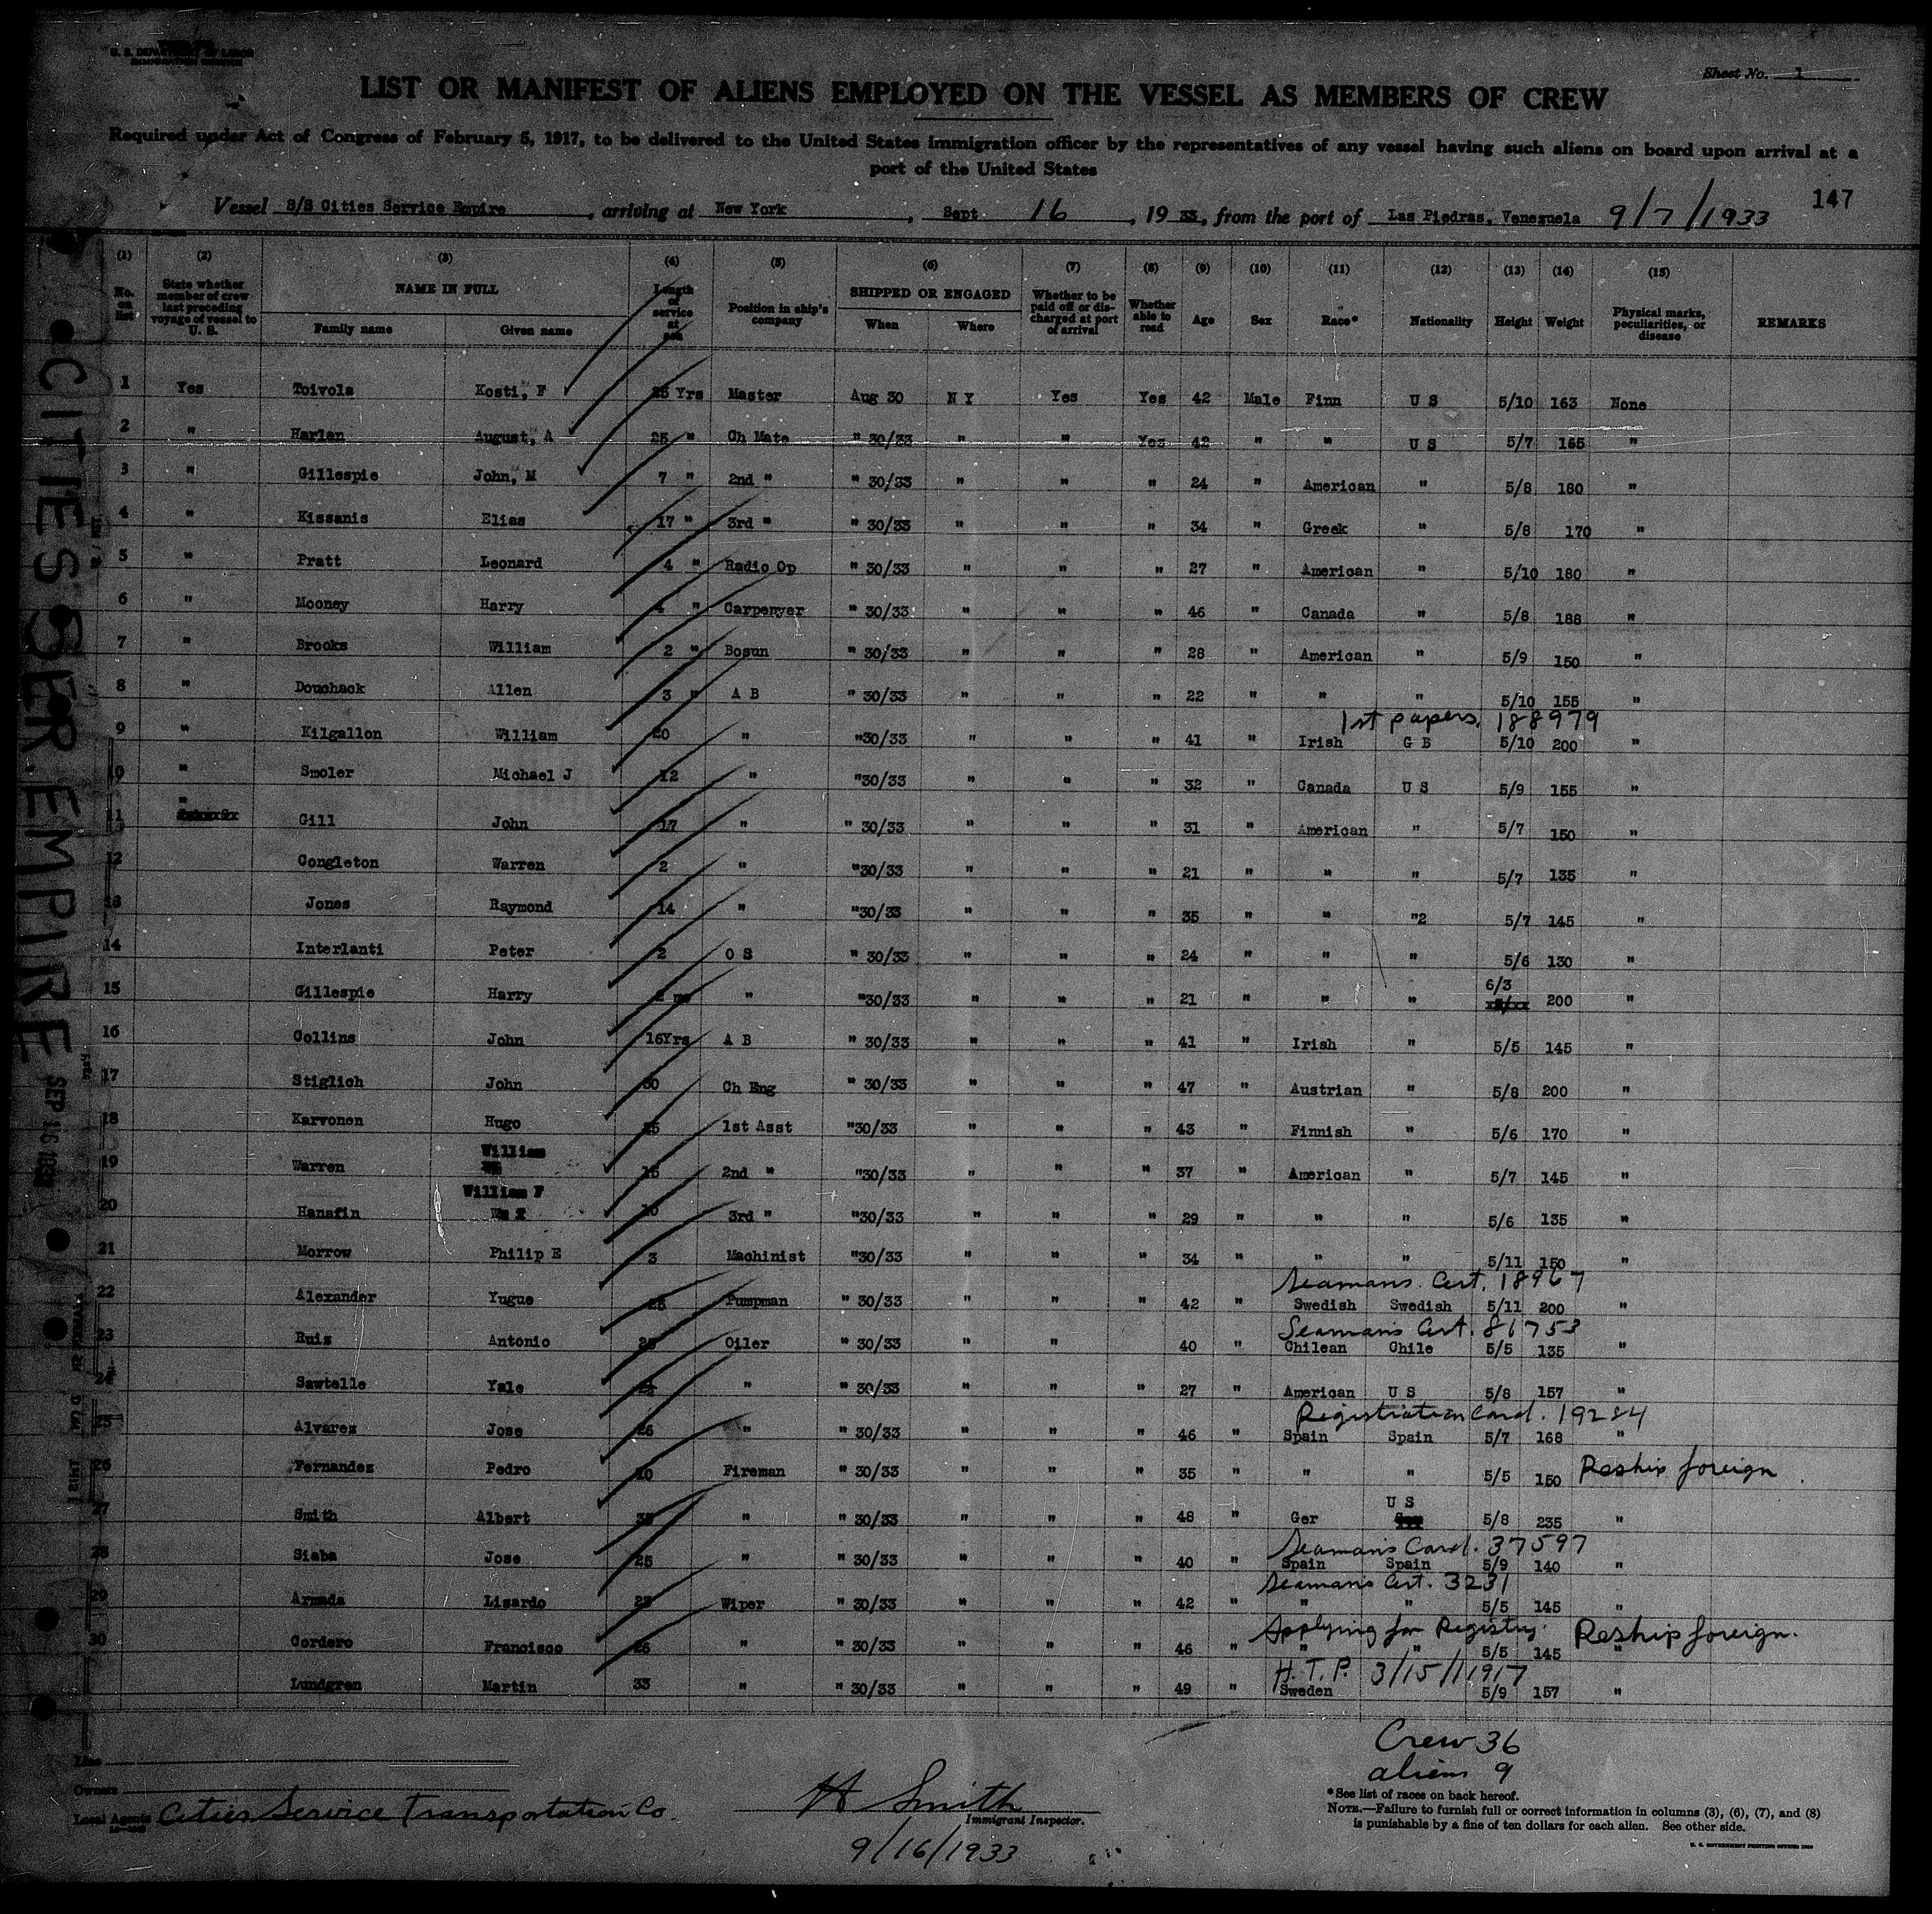 U. S. DEPARTMENT OF LABOR
IMMIGRATION SERVICE
Sheet No. 1
LIST OR MANIFEST OF ALIENS EMPLOYED ON THE VESSEL AS MEMBERS OF CREW
Required under Act of Congress of February 5, 1917, to be delivered to the United States immigration officer by the representatives of any vessel having such aliens on board upon arrival at a
port of the United States
147
Vessel S/S Cities Service Empire, arriving at New York, Sept 16, 19 33, from the port of Las Piedras, Venezuela 9/7/1933
(1) (2) (3) (4) (5) (6) (7) (8) (9) (10) (11) (12) (13) (14) (15)
No. on list State whether member of crew last preceding voyage of vessel to U. S. NAME IN FULL Family name Given name Length of service at sea Position in ship's company SHIPPED OR ENGAGED When Where Whether to be paid off or discharged at port of arrival Whether able to read Age Sex Race* Nationality Height Weight Physical marks, peculiarities, or disease REMARKS
1 Yes Toivola Kosti, F 25 Yrs Master Aug 30 N Y Yes Yes 42 Male Finn U S 5/10 163 None
2 " Harlan August, A 25 " Ch Mate " 30/33 " " Yes 42 " " U S 5/7 165 "
3 " Gillespie John, M 7 " 2nd " " 30/33 " " " 24 " American " 5/8 180 "
4 " Kissanis Elias 17 " 3rd " " 30/33 " " " 34 " Greek " 5/8 170 "
5 " Pratt Leonard 4 " Radio Op " 30/33 " " " 27 " American " 5/10 180 "
6 " Mooney Harry 4 " Carpenyer " 30/33 " " " 46 " Canada " 5/8 188 "
7 " Brooks William 2 " Bosun " 30/33 " " " 28 " American " 5/9 150 "
8 " Douchack Allen 3 " A B " 30/33 " " " 22 " " " 5/10 155 "
1st papers. 188979
9 " Kilgallon William 20 " "30/33 " " " 41 " Irish G B 5/10 200 "
10 " Smoler Michael J 12 " "30/33 " " " 32 " Canada U S 5/9 155 "
11 " Gill John 17 " " 30/33 " " " 31 " American " 5/7 150 "
12 Congleton Warren 2 " "30/33 " " " 21 " " " 5/7 135 "
13 Jones Raymond 14 " "30/33 " " " 35 " " "2 5/7 145 "
14 Interlanti Peter 2 O S " 30/33 " " " 24 " " " 5/6 130 "
6/3
15 Gillespie Harry 2 mo " "30/33 " " " 21 " " " 200 "
16 Collins John 16Yrs A B " 30/33 " " " 41 " Irish " 5/5 145 "
17 Stiglich John 30 Ch Eng " 30/33 " " " 47 " Austrian " 5/8 200 "
18 Karvonen Hugo 25 1st Asst "30/33 " " " 43 " Finnish " 5/6 170 "
William
19 Warren 15 2nd " "30/33 " " " 37 " American " 5/7 145 "
William F
20 Hanafin 10 3rd " "30/33 " " " 29 " " " 5/6 135 "
21 Morrow Philip E 3 Machinist "30/33 " " " 34 " " " 5/11 150 "
Seamans Cert. 18967
22 Alexander Yugue 25 Pumpman " 30/33 " " " 42 " Swedish Swedish 5/11 200 "
Seamans Cert. 81753
23 Ruiz Antonio 25 Oiler " 30/33 " " 40 " Chilean Chile 5/5 135 "
24 Sawtelle Yale " " 30/33 " " " 27 " American U S 5/8 157 "
Registration Card. 19284
25 Alvarez Jose 26 " " 30/33 " " " 46 " Spain Spain 5/7 168 "
26 Fernandez Pedro 10 Fireman " 30/33 " " " 35 " " " 5/5 150 Reship foreign
U S
27 Smith Albert " " 30/33 " " " 48 " Ger 5/8 235 "
Seamans Card. 37597
28 Siaba Jose 25 " " 30/33 " " " 40 " Spain Spain 5/9 140 "
Seamans Cert. 3231
29 Armada Lisardo 27 Wiper " 30/33 " " " 42 " " " 5/5 145 "
Applying for Registry. Reship foreign.
30 Cordero Francisco 26 " " 30/33 " " " 46 " " " 5/5 145 "
H.T.P. 3/15/1917
Lundgren Martin 33 " " 30/33 " " " 49 " Sweden 5/9 157 "
Crew 36
aliens 9
Line
Owners
Local Agents Cities Service Transportation Co.
H Smith
Immigrant Inspector.
9/16/1933
*See list of races on back hereof.
NOTE.—Failure to furnish full or correct information in columns (3), (6), (7), and (8)
is punishable by a fine of ten dollars for each alien. See other side.
U. S. GOVERNMENT PRINTING OFFICE
CITIES SER. EMPIRE SEP 16 1933